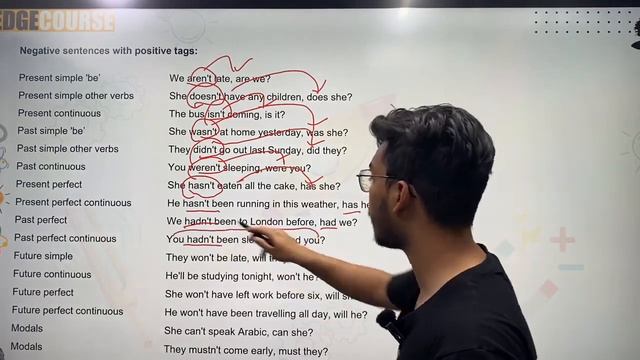 EDGECOURSE
Negative sentences with positive tags:
Present simple 'be' We aren't late, are we?
Present simple other verbs She doesn't have any children, does she?
Present continuous The bus isn't coming, is it?
Past simple 'be' She wasn't at home yesterday, was she?
Past simple other verbs They didn't go out last Sunday, did they?
Past continuous You weren't sleeping, were you?
Present perfect She hasn't eaten all the cake, has she?
Present perfect continuous He hasn't been running in this weather, has he
Past perfect We hadn't been to London before, had we?
Past perfect continuous You hadn't been you?
Future simple They won't be late, will
Future continuous He'll be studying tonight, won't he?
Future perfect She won't have left work before six, will
Future perfect continuous He won't have been travelling all day, will he?
Modals She can't speak Arabic, can she?
Modals They mustn't come early, must they?